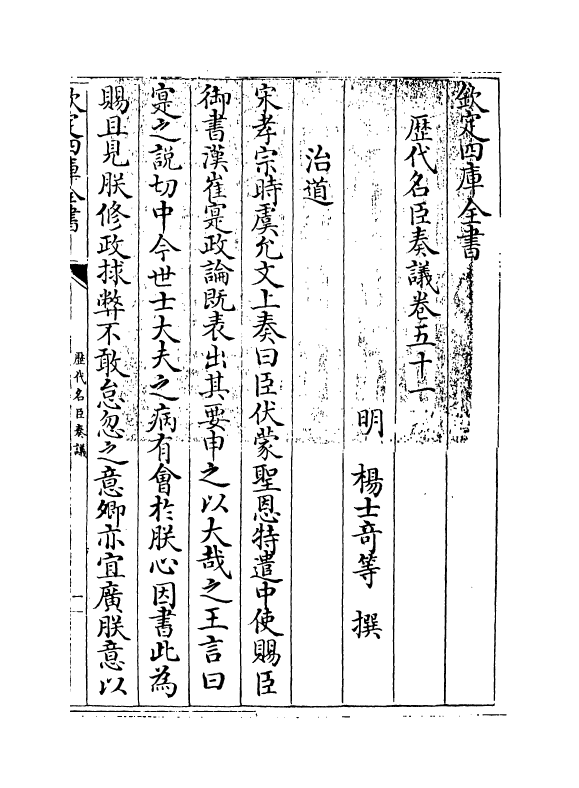 欽定四庫全書
歷代名臣奏議卷五十一
明 楊士竒等 撰
治道
宋孝宗時虞允文上奏曰臣伏蒙聖恩特遣中使賜臣
御書漢崔寔政論既表出其要申之以大哉之王言曰
寔之説切中今世士大夫之病有會於朕心因書此為
賜且見朕修政捄弊不敢怠忽之意卿亦宜廣朕意以
欽定四庫全書
歷代名臣奏議
一